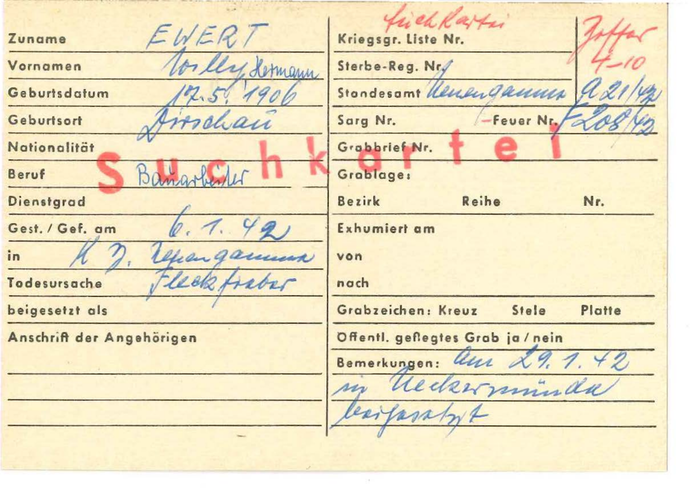 Zuname EWERT
Vornamen Willy Hermann
Geburtsdatum 17.5.1906
Geburtsort Dirschau
Nationalität
Beruf Bauarbeiter
Dienstgrad
Gest./Gef. am 6.1.42
in K.Z. Neuengamme
Todesursache Fleckfieber
beigesetzt als
Anschrift der Angehörigen
Suchkartei
Suchkartei
Kriegsgr. Liste Nr.
4-10
Sterbe-Reg. Nr.
Standesamt Neuengamme A 21/42
Sarg Nr. -Feuer Nr. F 208/42
Grabbrief Nr.
Grablage:
Bezirk Reihe Nr.
Exhumiert am
von
nach
Grabzeichen: Kreuz Stele Platte
Öffentl. geflegtes Grab ja/nein
Bemerkungen: Am 29.1.42
in Ueckermünde
beigesetzt